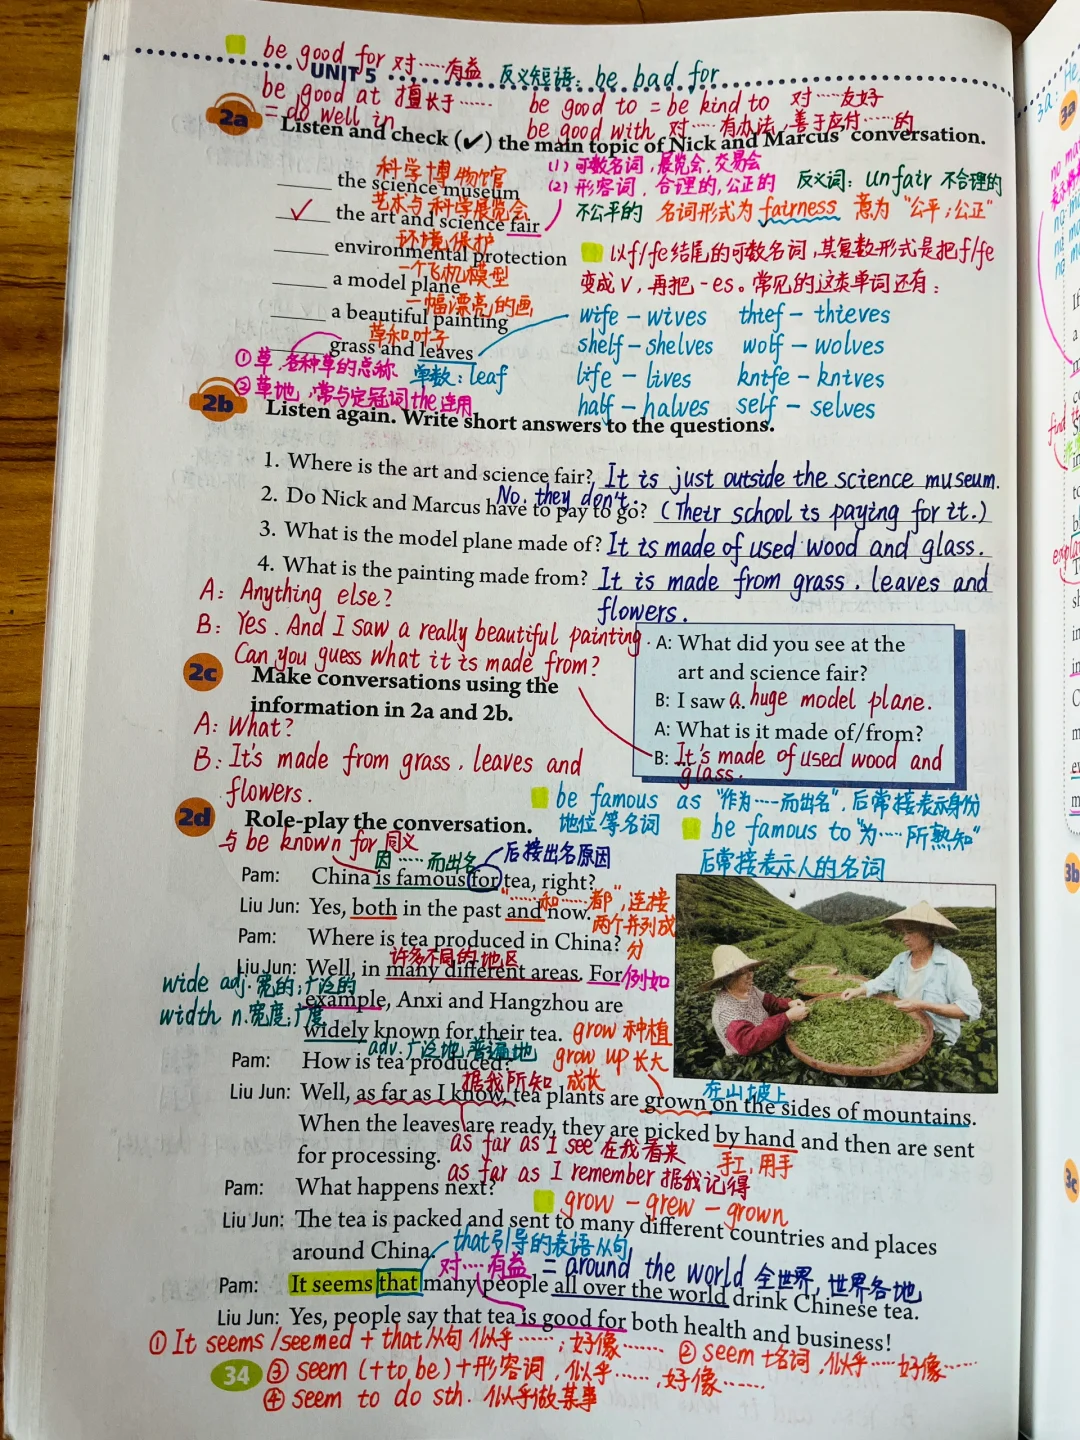 be good for 对……有益 反义短语: be bad for
UNIT 5
be good at 擅长于……
= do well in
be good to = be kind to 对……友好
be good with 对……有办法,善于应付……的
2a Listen and check (✔) the main topic of Nick and Marcus' conversation.
科学博物馆
_____ the science museum
艺术与科学展览会
✓ the art and science fair
(1) 可数名词,展览会,交易会
(2) 形容词,合理的,公正的 反义词: unfair 不合理的
不公平的 名词形式为 fairness 意为“公平;公正”
环境保护
_____ environmental protection
一个飞机模型
_____ a model plane
一幅漂亮的画
_____ a beautiful painting
草和叶子
_____ grass and leaves
以f/fe结尾的可数名词,其复数形式是把f/fe
变成v,再把-es。常见的这类单词还有:
wife - wives thief - thieves
shelf - shelves wolf - wolves
life - lives knife - knives
half - halves self - selves
①草,各种草的总称. 单数: leaf
②草地,常与定冠词the连用
2b Listen again. Write short answers to the questions.
1. Where is the art and science fair? It is just outside the science museum.
No, they don't.
2. Do Nick and Marcus have to pay to go? (Their school is paying for it.)
3. What is the model plane made of? It is made of used wood and glass.
4. What is the painting made from? It is made from grass, leaves and
flowers.
A: Anything else?
B: Yes. And I saw a really beautiful painting.
Can you guess what it is made from?
2c Make conversations using the
information in 2a and 2b.
A: What?
B: It's made from grass, leaves and
flowers.
A: What did you see at the
art and science fair?
B: I saw a huge model plane.
A: What is it made of/from?
B: It's made of used wood and
glass.
be famous as “作为……而出名”,后常接表示身份
地位等名词 be famous to “为……所熟知”
后常接表示人的名词
2d Role-play the conversation.
与 be known for 同义
因……而出名 后接出名原因
Pam: China is famous for tea, right?
“……和……都”,连接
两个并列成
分
Liu Jun: Yes, both in the past and now.
Pam: Where is tea produced in China?
许多不同的地区
Liu Jun: Well, in many different areas. For 例如
example, Anxi and Hangzhou are
widely known for their tea.
wide adj.宽的;广泛的
width n.宽度;广度
adv.广泛地,普遍地
grow 种植
grow up 长大
成长
Pam: How is tea produced?
据我所知 在山坡上
Liu Jun: Well, as far as I know, tea plants are grown on the sides of mountains.
When the leaves are ready, they are picked by hand and then are sent
for processing.
as far as I see 在我看来 手工,用手
as far as I remember 据我记得
Pam: What happens next?
grow - grew - grown
Liu Jun: The tea is packed and sent to many different countries and places
around China.
that引导的表语从句
对……有益 = around the world 全世界,世界各地
Pam: It seems that many people all over the world drink Chinese tea.
Liu Jun: Yes, people say that tea is good for both health and business!
① It seems/seemed + that从句 似乎……;好像…… ② seem +名词,似乎……好像……
34 ③ seem (+to be)+形容词,似乎……,好像……
④ seem to do sth. 似乎做某事
3a
3b
3c